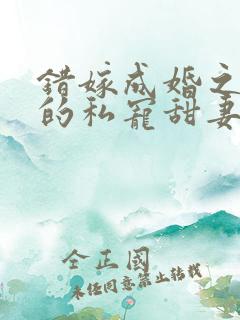 錯嫁成婚之
的私寵甜妻
全正國
未經同意禁止轉載